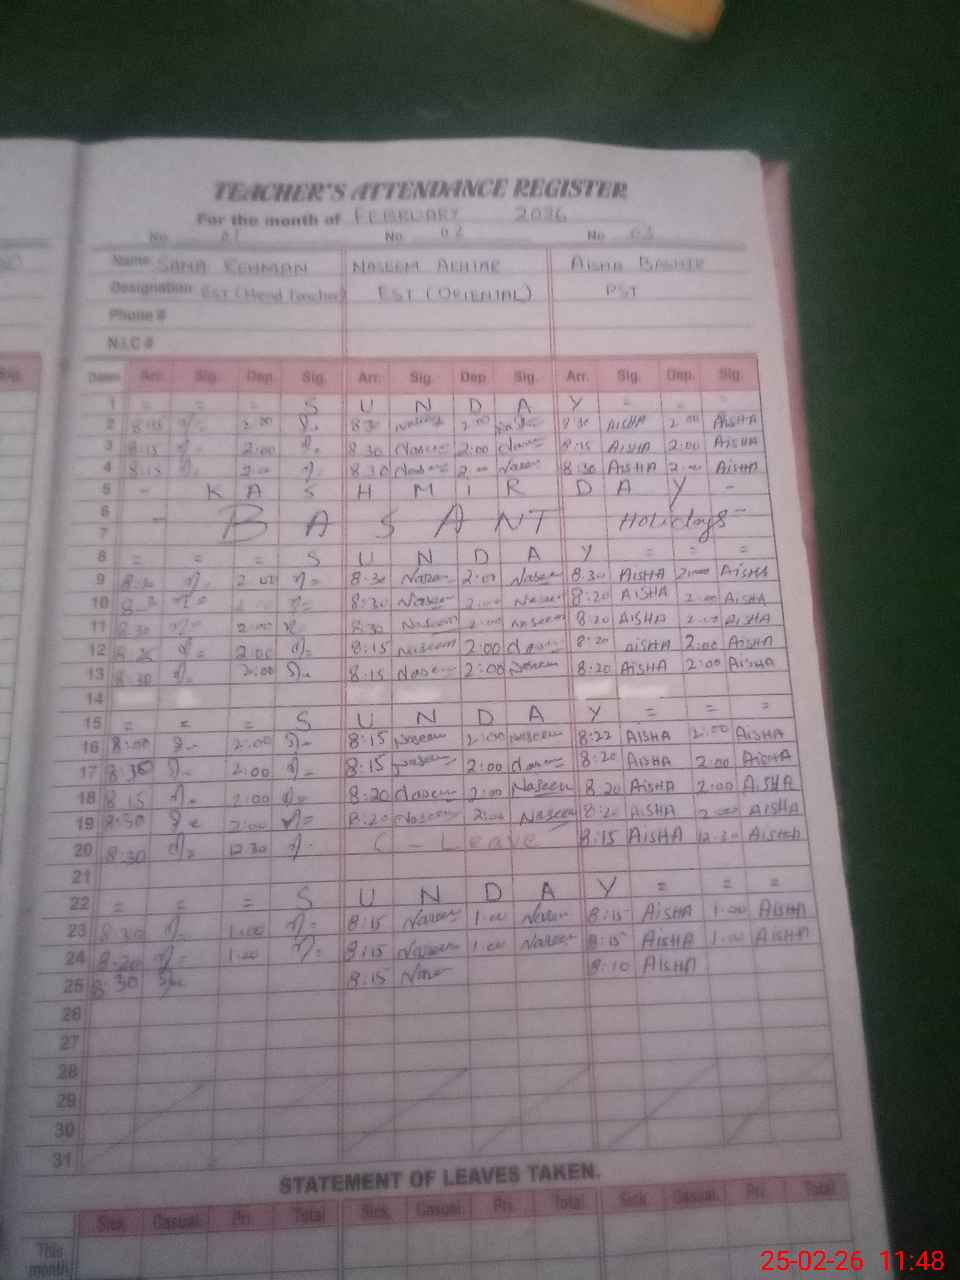 TEACHER'S ATTENDANCE REGISTER
For the month of FEBRUARY 2026
No 01 No 02 No 03
Name SAMA REHMAN NASEEM AKHTAR AISHA BASHIR
Designation EST (Head Teacher) EST (ORIENTAL) PST
Phone #
N.I.C #
Dates Arr. Sig. Dep. Sig. Arr. Sig. Dep. Sig. Arr. Sig. Dep. Sig.
1 = = = S U N D A Y = = =
2 8:15 2:00 8:30 Naseem 2:00 8:30 AISHA 2:00 AISHA
3 8:15 2:00 8:30 Naseem 2:00 8:15 AISHA 2:00 AISHA
4 8:15 2:00 8:30 Naseem 2:00 Naseem 8:30 AISHA 2:00 AISHA
5 - K A S H M I R D A Y -
6 - B A S A N T Holidays -
7
8 = = = S U N D A Y = = =
9 8:30 2:00 8:30 Naseem 2:00 Naseem 8:30 AISHA 2:00 AISHA
10 8:30 Naseem 2:00 Naseem 8:20 AISHA 2:00 AISHA
11 8:30 2:00 8:30 Naseem 2:00 Naseem 8:20 AISHA 2:00 AISHA
12 2:00 8:15 Naseem 2:00 8:20 AISHA 2:00 AISHA
13 8:30 2:00 8:15 Naseem 2:00 Naseem 8:20 AISHA 2:00 AISHA
14
15 = = = S U N D A Y = = =
16 8:00 2:00 8:15 Naseem 2:00 Naseem 8:22 AISHA 2:00 AISHA
17 2:00 8:15 Naseem 2:00 8:20 AISHA 2:00 AISHA
18 8:15 2:00 8:20 Naseem 2:00 Naseem 8:20 AISHA 2:00 AISHA
19 2:00 8:20 Naseem 2:00 Naseem 8:20 AISHA 2:00 AISHA
20 8:30 12:30 C - Leave 8:15 AISHA 12:30 AISHA
21
22 = = = S U N D A Y = = =
23 8:30 1:00 8:15 Naseem 1:00 Naseem 8:15 AISHA 1:00 AISHA
24 8:20 1:00 8:15 Naseem 1:00 Naseem 8:15 AISHA 1:00 AISHA
25 8:30 8:15 8:10 AISHA
26
27
28
29
30
31
STATEMENT OF LEAVES TAKEN.
Sick Casual. Pri. Total Sick. Casual. Pri. Total Sick. Casual. Pri. Total
This month
25-02-26 11:48